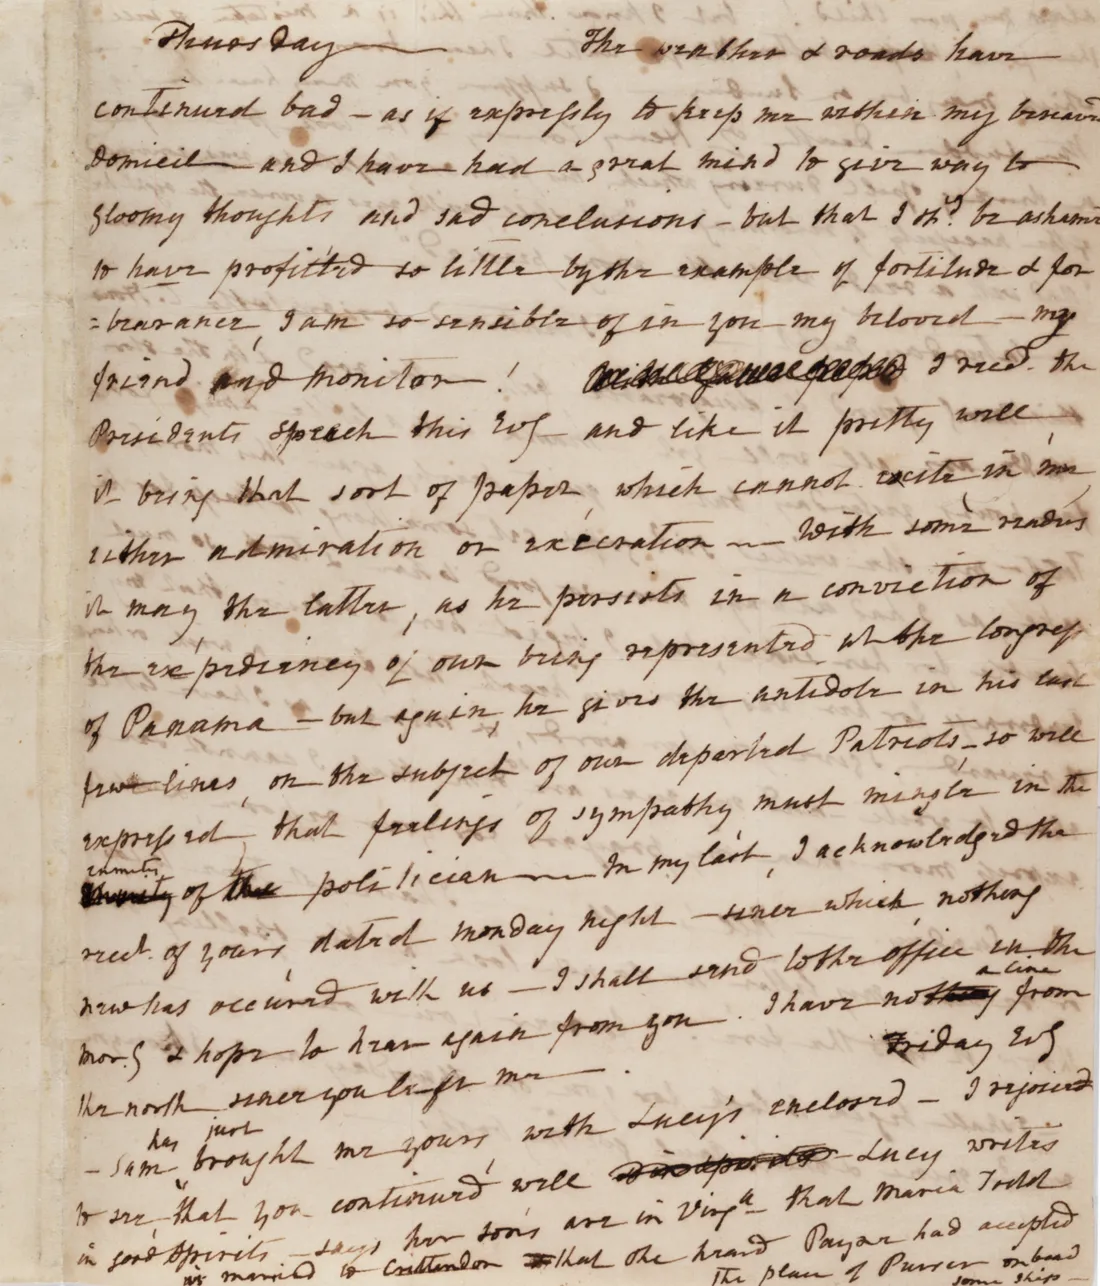 Thursday — The weather & roads have
continued bad – as if expressly to keep me within my
Domicil — and I have had a great mind to give way to
gloomy thoughts and sad conclusions – but that I shd. be ashamed
to have profitted so little by the example of fortitude & for
=bearance, I am so sensible of in you my beloved – my
friend and monitor ! I recd. the
Presidents speach this Evg and like it pretty well
it being that sort of paper, which cannot excite in me,
either admiration or execration — With some readers
it may, the latter, as he persists in a conviction of
the expediency of our being represented at the Congress
of Panama – but again, he gives the antidote in his last
few lines, on the subject of our departed Patriots, – so well
expressed, that feelings of sympathy must mingle in the
enmity of the politician — In my last, I acknowledged the
rect. of yours dated monday night – since which, nothing
new has occured with us – I shall send to the office in the
Morg & hope to hear again from you. I have not a line from
the north since you left me — .
Friday Evg
– Sam has just brought me yours, with Lucy's enclosed – I rejoiced
to see that you continued well – Lucy writes
in good spirits – says her sons are in Virga – that Maria Todd
is married to Crittendon – that she heard Payne had accepted
the place of Purser on board
some ship –